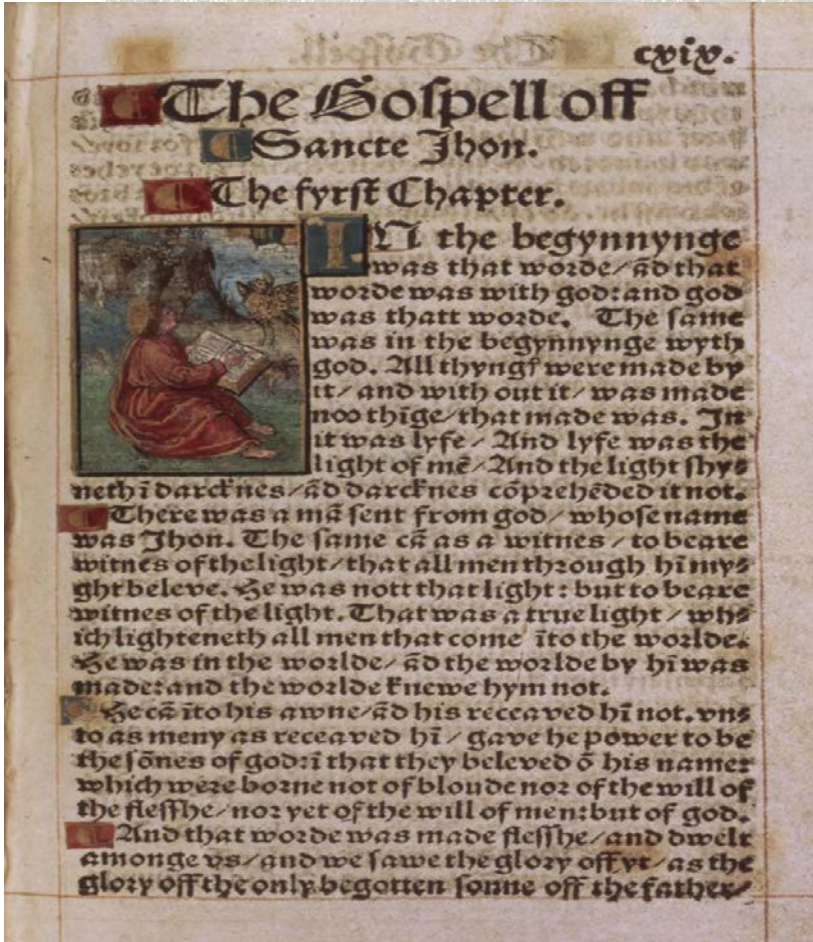 cxix.
The Gospell off
Sancte Jhon.
The fyrst Chapter.
IN the begynnynge
was that worde/ ād that
worde was with god: and god
was thatt worde. The same
was in the begynnynge wyth
god. All thyngꝭ were made by
it/ and with out it/ was made
noo thīge/ that made was. In
it was lyfe/ And lyfe was the
light of mē/ And the light shy⸗
neth ī darcknes/ ād darcknes cōprehēded it not.
¶ There was a mā sent from god/ whose name
was Jhon. The same cā as a witnes/ to beare
witnes of the light/ that all men through hī my⸗
ght beleve. He was nott that light: but to beare
witnes of the light. That was a true light/ wh⸗
ich lighteneth all men that come īto the worlde.
He was in the worlde/ ād the worlde by hī was
made: and the worlde knewe hym not.
He cā īto his awne/ ād his receaved hī not. vn⸗
to as meny as receaved hī/ gave he power to be
the sōnes of god: ī that they beleved ō his name:
which were borne not of bloude nor of the will of
the flesshe/ nor yet of the will of men: but of god.
¶ And that worde was made flesshe/ and dwelt
amonge vs/ and we sawe the glory off yt/ as the
glory off the only begotten sonne off the father/